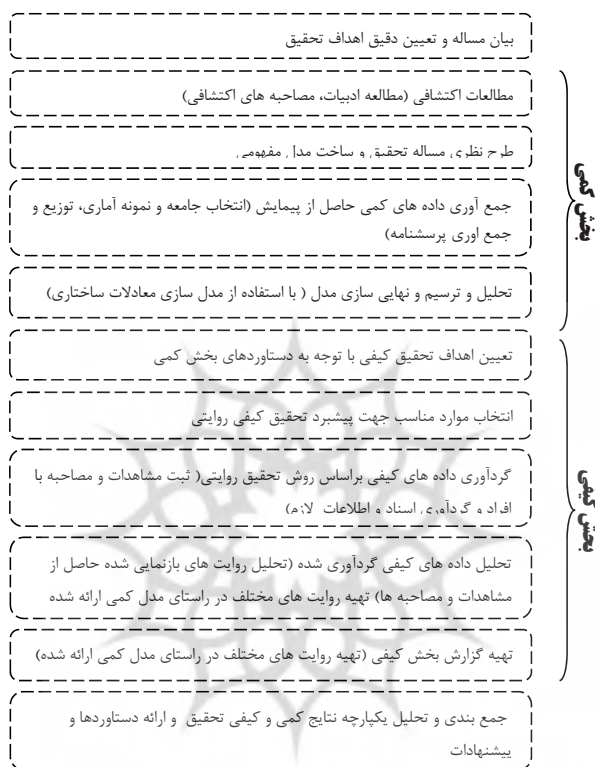 بیان مساله و تعیین دقیق اهداف تحقیق
مطالعات اکتشافی (مطالعه ادبیات، مصاحبه های اکتشافی)
طرح نظری مساله تحقیق و ساخت مدل مفهومی
جمع آوری داده های کمی حاصل از پیمایش (انتخاب جامعه و نمونه آماری، توزیع و
جمع اوری پرسشنامه)
تحلیل و ترسیم و نهایی سازی مدل ( با استفاده از مدل سازی معادلات ساختاری)
بخش کمی
تعیین اهداف تحقیق کیفی با توجه به دستاوردهای بخش کمی
انتخاب موارد مناسب جهت پیشبرد تحقیق کیفی روایتی
گردآوری داده های کیفی براساس روش تحقیق روایتی( ثبت مشاهدات و مصاحبه با
افراد و گردآوری اسناد و اطلاعات لازم)
تحلیل داده های کیفی گردآوری شده (تحلیل روایت های بازنمایی شده حاصل از
مشاهدات و مصاحبه ها) تهیه روایت های مختلف در راستای مدل کمی ارائه شده
تهیه گزارش بخش کیفی (تهیه روایت های مختلف در راستای مدل کمی ارائه شده)
بخش کیفی
جمع بندی و تحلیل یکپارچه نتایج کمی و کیفی تحقیق و ارائه دستاوردها و
پیشنهادات